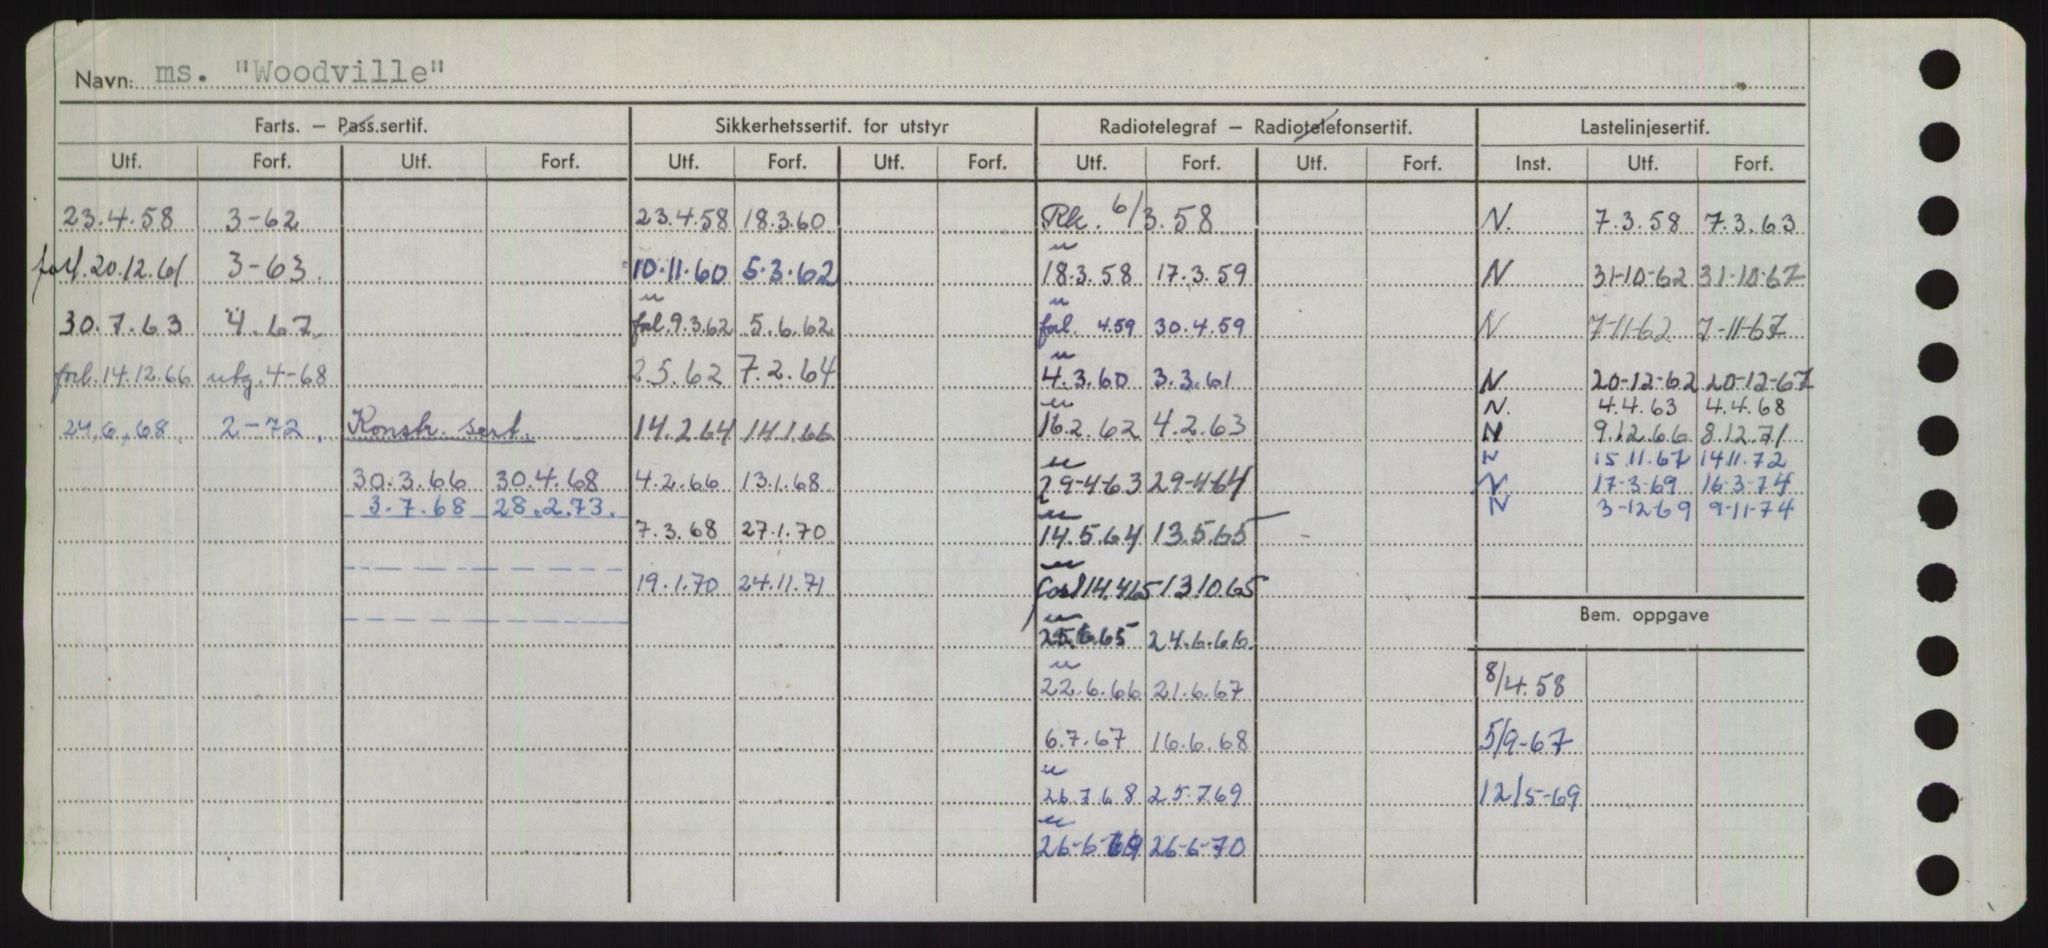 Navn: ms. "Woodville"
Farts. – Pass.sertif. Sikkerhetssertif. for utstyr Radiotelegraf – Radiotelefonsertif. Lastelinjesertif.
Utf. Forf. Utf. Forf. Utf. Forf. Utf. Forf. Utf. Forf. Utf. Forf. Inst. Utf. Forf.
23.4.58 3-62 23.4.58 18.3.60 Rk. 6/3.58 N. 7.3.58 7.3.63
forl. 20.12.61 3-63. 10.11.60 5.3.62 18.3.58 17.3.59 N 31-10-62 31-10-67
30.7.63 4.67 forl. 9.3.62 5.6.62 forl. 4.59 30.4.59 N 7-11-62 7-11-67
forl. 14.12.66 utg. 4-68 2.5.62 7.2.64 4.3.60 3.3.61 N 20-12-62 20-12-67
N. 4.4.63 4.4.68
24.6.68. 2-72. Konstr. sert. 14.2.64 14.1.66 16.2.62 4.2.63 N 9.12.66 8.12.71
N 15.11.67 14.11.72
30.3.66 30.4.68 4.2.66 13.1.68 29-4-63 29-4-64 N 17-3-69 16-3-74
3.7.68 28.2.73. N 3-12-69 9-11-74
7.3.68 27.1.70 14.5.64 13.5.65
19.1.70 24.11.71 forl 14.4.65 13.10.65
Bem. oppgave
25.6.65 24.6.66.
22.6.66 21.6.67 8/4.58
6.7.67 16.6.68 5/9-67
26.7.68 25.7.69 12/5-69
26-6-69 26-6-70